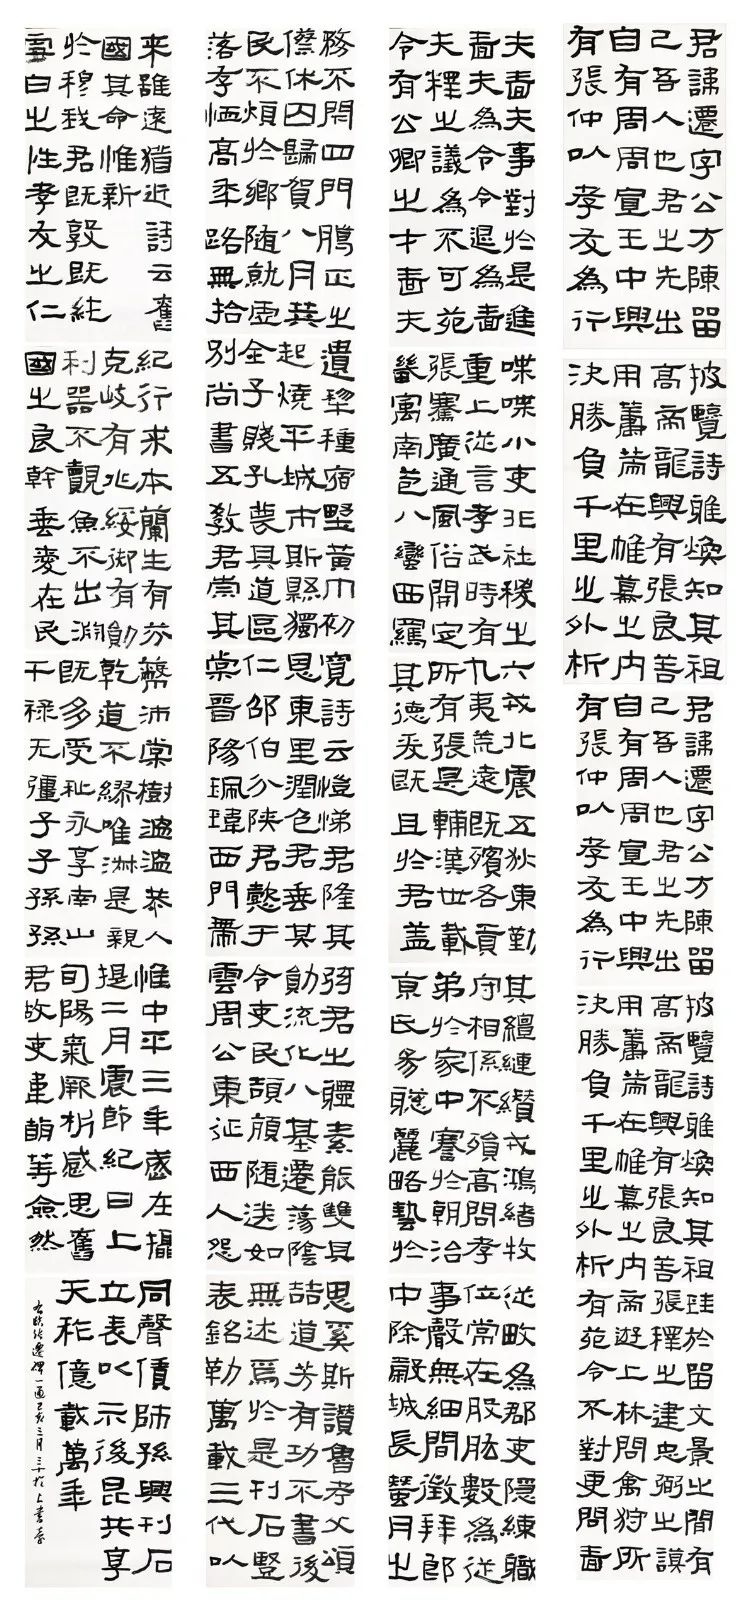 君諱遷字公方陳留
己吾人也君之先出
自有周周宣王中興
有張仲以孝友為行
披覽詩雅煥知其祖
高帝龍興有張良善
用籌策在帷幕之內
決勝負千里之外析
君諱遷字公方陳留
己吾人也君之先出
自有周周宣王中興
有張仲以孝友為行
披覽詩雅煥知其祖珪於留文景之間有
高帝龍興有張良善張釋之建忠弼之謨
用籌策在帷幕之內帝遊上林問禽狩所
決勝負千里之外析有苑令不對更問嗇
夫嗇夫事對於是進
嗇夫為令令退為嗇
夫釋之議為不可苑
令有公卿之才嗇夫
喋喋小吏非社稷之
重上從言孝武時有
張騫廣通風俗開定
畿寓南苞八蠻西羈
六戎北震五狄東勤
九夷荒遠既殯各貢
所有張是輔漢世載
其德爰既且於君蓋
其繵縺纘戎鴻緒牧
守相係不殞高問孝
弟於家中謇於朝治
京氏易聰麗略藝於
從畋為郡吏隱練職
位常在股肱數為從
事聲無細聞徵拜郎
中除穀城長蠶月之
務不閉四門臘正之
僚休囚歸賀八月筭
民不煩於鄉隨就虛
落存恤高年路無拾
遺犁種宿野黃巾初
起燒平城市斯縣獨
全子賤孔蔑其道區
別尚書五教君崇其
寬詩云愷悌君隆其
恩東里潤色君垂其
仁邵伯分陝君懿于
棠晉陽珮瑋西門帶
弦君之體素能雙其
勛流化八基遷蕩陰
令吏民頡頏隨送如
雲周公東征西人怨
思奚斯讚魯考父頌
喆道芳有功不書後
無述焉於是刊石豎
表銘勒萬載三代以
來雖遠猶近詩云舊
國其命惟新
於穆我君既敦既純
雪白之性孝友之仁
紀行求本蘭生有芬
克岐有兆綏御有勛
利器不覿魚不出淵
國之良幹垂愛在民
蔽沛棠樹溫溫恭人
乾道不繆唯淑是親
既多受祉永享南山
干祿无疆子子孫孫
惟中平三年歲在攝
提二月震節紀日上
旬陽氣厥析感思舊
君故吏韋萌等僉然
同聲賃師孫興刊石
立表以示後昆共享
天祚億載萬年
右臨張遷碑一通己亥三月